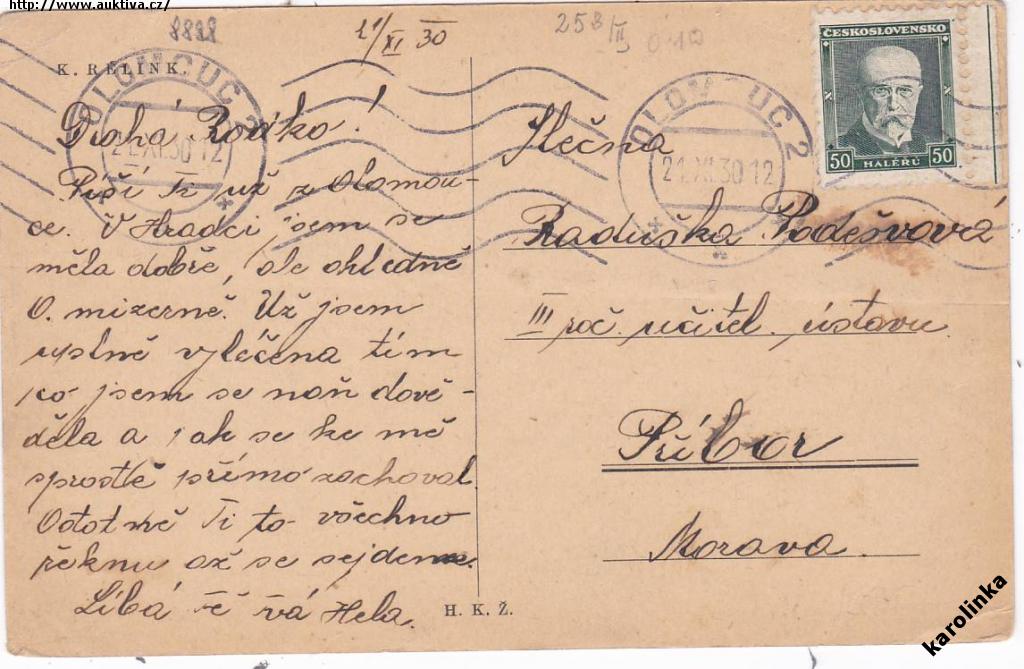 http://www.auktiva.cz/
8888
21/XI 30
253/II
K. RELINK
OLOMOUC 2
21.XI.30 12
OLOMOUC 2
21.XI.30 12
ČESKOSLOVENSKO
50 HALÉŘŮ 50
Drahá Radko!
Píši Ti už z Olomou-
ce. V Hradci jsem se
měla dobře, ale ohledně
O. mizerně. Už jsem
uplně vyléčena tím
co jsem se naň dově-
děla a jak se ke mě
sprostě přímo zachoval
Ototmě Ti to všechno
řeknu až se sejdeme.
Líbá tě tvá Hela.
Slečna
Raduška Podešvová
III roč. učitel. ústavu
Příbor
Morava.
H. K. Ž.
karolinka